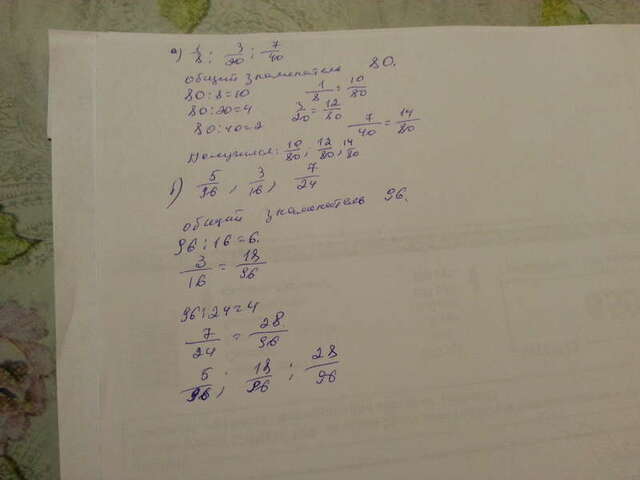 а) 1/8; 3/20; 7/40
общий знаменатель 80.
80:8=10 1/8=10/80
80:20=4 3/20=12/80
80:40=2 7/40=14/80
Получился: 10/80; 12/80; 14/80
б) 5/96, 3/16, 7/24
общий знаменатель 96.
96:16=6.
3/16=18/96
96:24=4
7/24=28/96
5/96; 18/96; 28/96